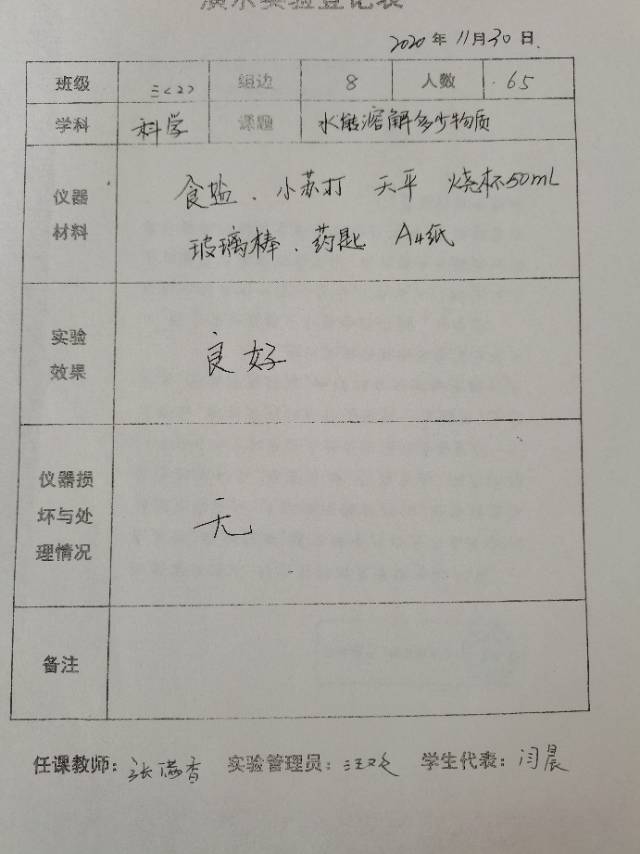 演示实验登记表
2020年11月30日.
班级 三<2> 组边 8 人数 65
学科 科学 课题 水能溶解多少物质
仪器材料 食盐. 小苏打 天平 烧杯50mL
玻璃棒. 药匙 A4纸
实验效果 良好
仪器损坏与处理情况 无
备注
任课教师: 张满香 实验管理员: 汪 学生代表: 闫晨